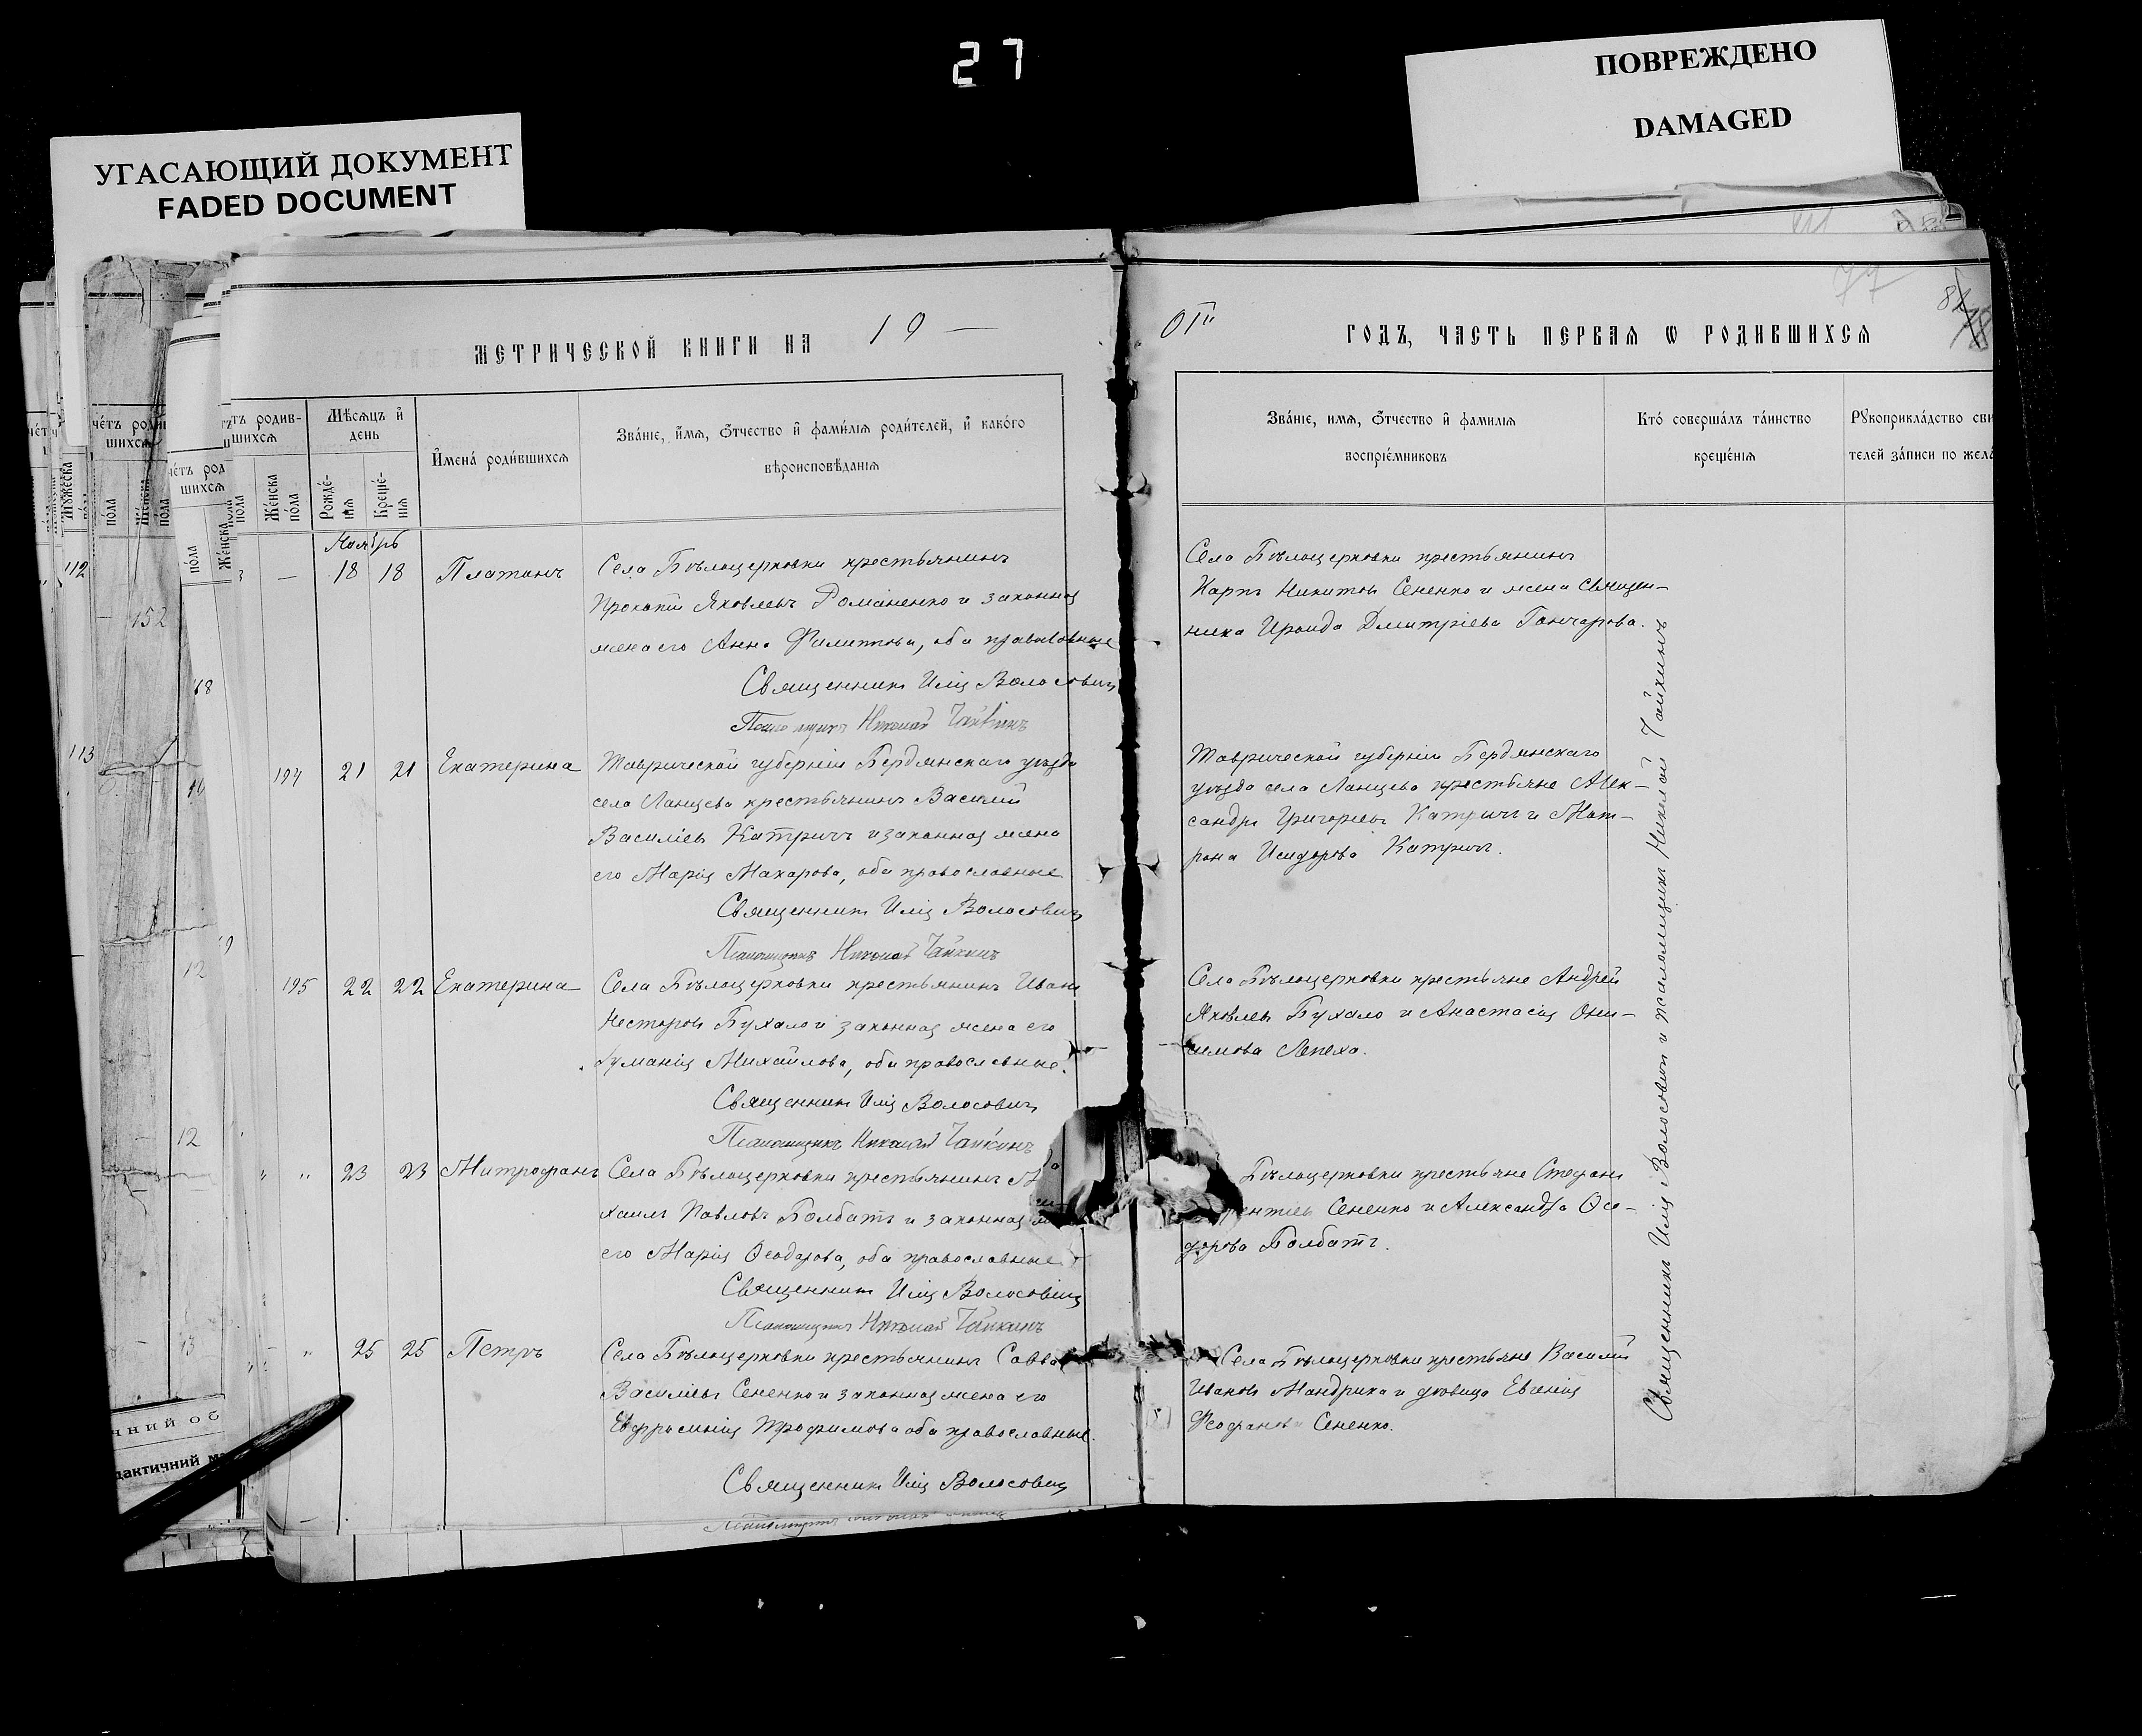 27
ПОВРЕЖДЕНО
DAMAGED
УГАСАЮЩИЙ ДОКУМЕНТ
FADED DOCUMENT
МЕТРИЧЕСКОЙ КНИГИ НА 19 —
тъ родив-
шихсѧ
Женска
пола
Мѣсѧцъ и
день
Рожде-
нїѧ
Креще-
нїѧ
Имена родившихсѧ
Званїе, имѧ, ѻтчество и фамилїѧ родителей, и какого
вѣроисповѣданїѧ
Ноябрь
— 18 18 Платонъ
Села Бѣлоцерковки крестьянинъ
Прокопій Яковлевъ Романенко и законная
жена его Анна Филиппова, оба православные
Священникъ Илія Волосовичъ
Псаломщикъ Николай Чайкинъ
194 21 21 Екатерина
Таврической губерніи Бердянскаго уѣзда
села Ланцево крестьянинъ Василій
Василіевъ Катричъ и законная жена
его Марія Макарова, оба православные
Священникъ Илія Волосовичъ
Псаломщикъ Николай Чайкинъ
195 22 22 Екатерина
Села Бѣлоцерковки крестьянинъ Иванъ
Несторовъ Бухало и законная жена его
Михайлова, оба православные.
Священникъ Илія Волосовичъ
Псаломщикъ Николай Чайкинъ
" " 23 23 Митрофанъ
Села Бѣлоцерковки крестьянинъ
хаилъ Павловъ Болбатъ и законная
его Марія Ѳеодорова, оба православные
Священникъ Илія Волосовичъ
Псаломщикъ Николай Чайкинъ
" 25 25 Петръ
Села Бѣлоцерковки крестьянинъ Савва
Василіевъ Сененко и законная жена его
Евфросинія Трофимова оба православные.
Священникъ Илія Волосовичъ
01й ГОДЪ, ЧАСТЬ ПЕРВАѦ Ѡ РОДИВШИХСѦ
77
Званїе, имѧ, ѻтчество и фамилїѧ
воспрїемниковъ
Кто совершалъ таинство
крещенїѧ
Рꙋкоприкладство сви
телей записи по жела
Села Бѣлоцерковки крестьянинъ
Карпъ Никитовъ Сененко и жена священ-
ника Ираида Дмитріева Гончарова.
Таврической губерніи Бердянскаго
уѣзда села Ланцево крестьяне Алек-
сандръ Григорьевъ Катричъ и Мат-
рона Исидорова Катричъ.
Села Бѣлоцерковки крестьяне Андрей
Яковлевъ Бухало и Анастасія Они-
симова Лепеха.
Бѣлоцерковки крестьяне Стефанъ
рентіевъ Сененко и Александра Ѳео-
дорова Болбатъ.
Села Бѣлоцерковки крестьяне Василій
Ивановъ Мандрика и дѣвица Евгенія
Феофанова Сененко.
Священникъ Илія Волосовичъ и псаломщикъ Николай Чайкинъ
112
152
68
113
12
12
13